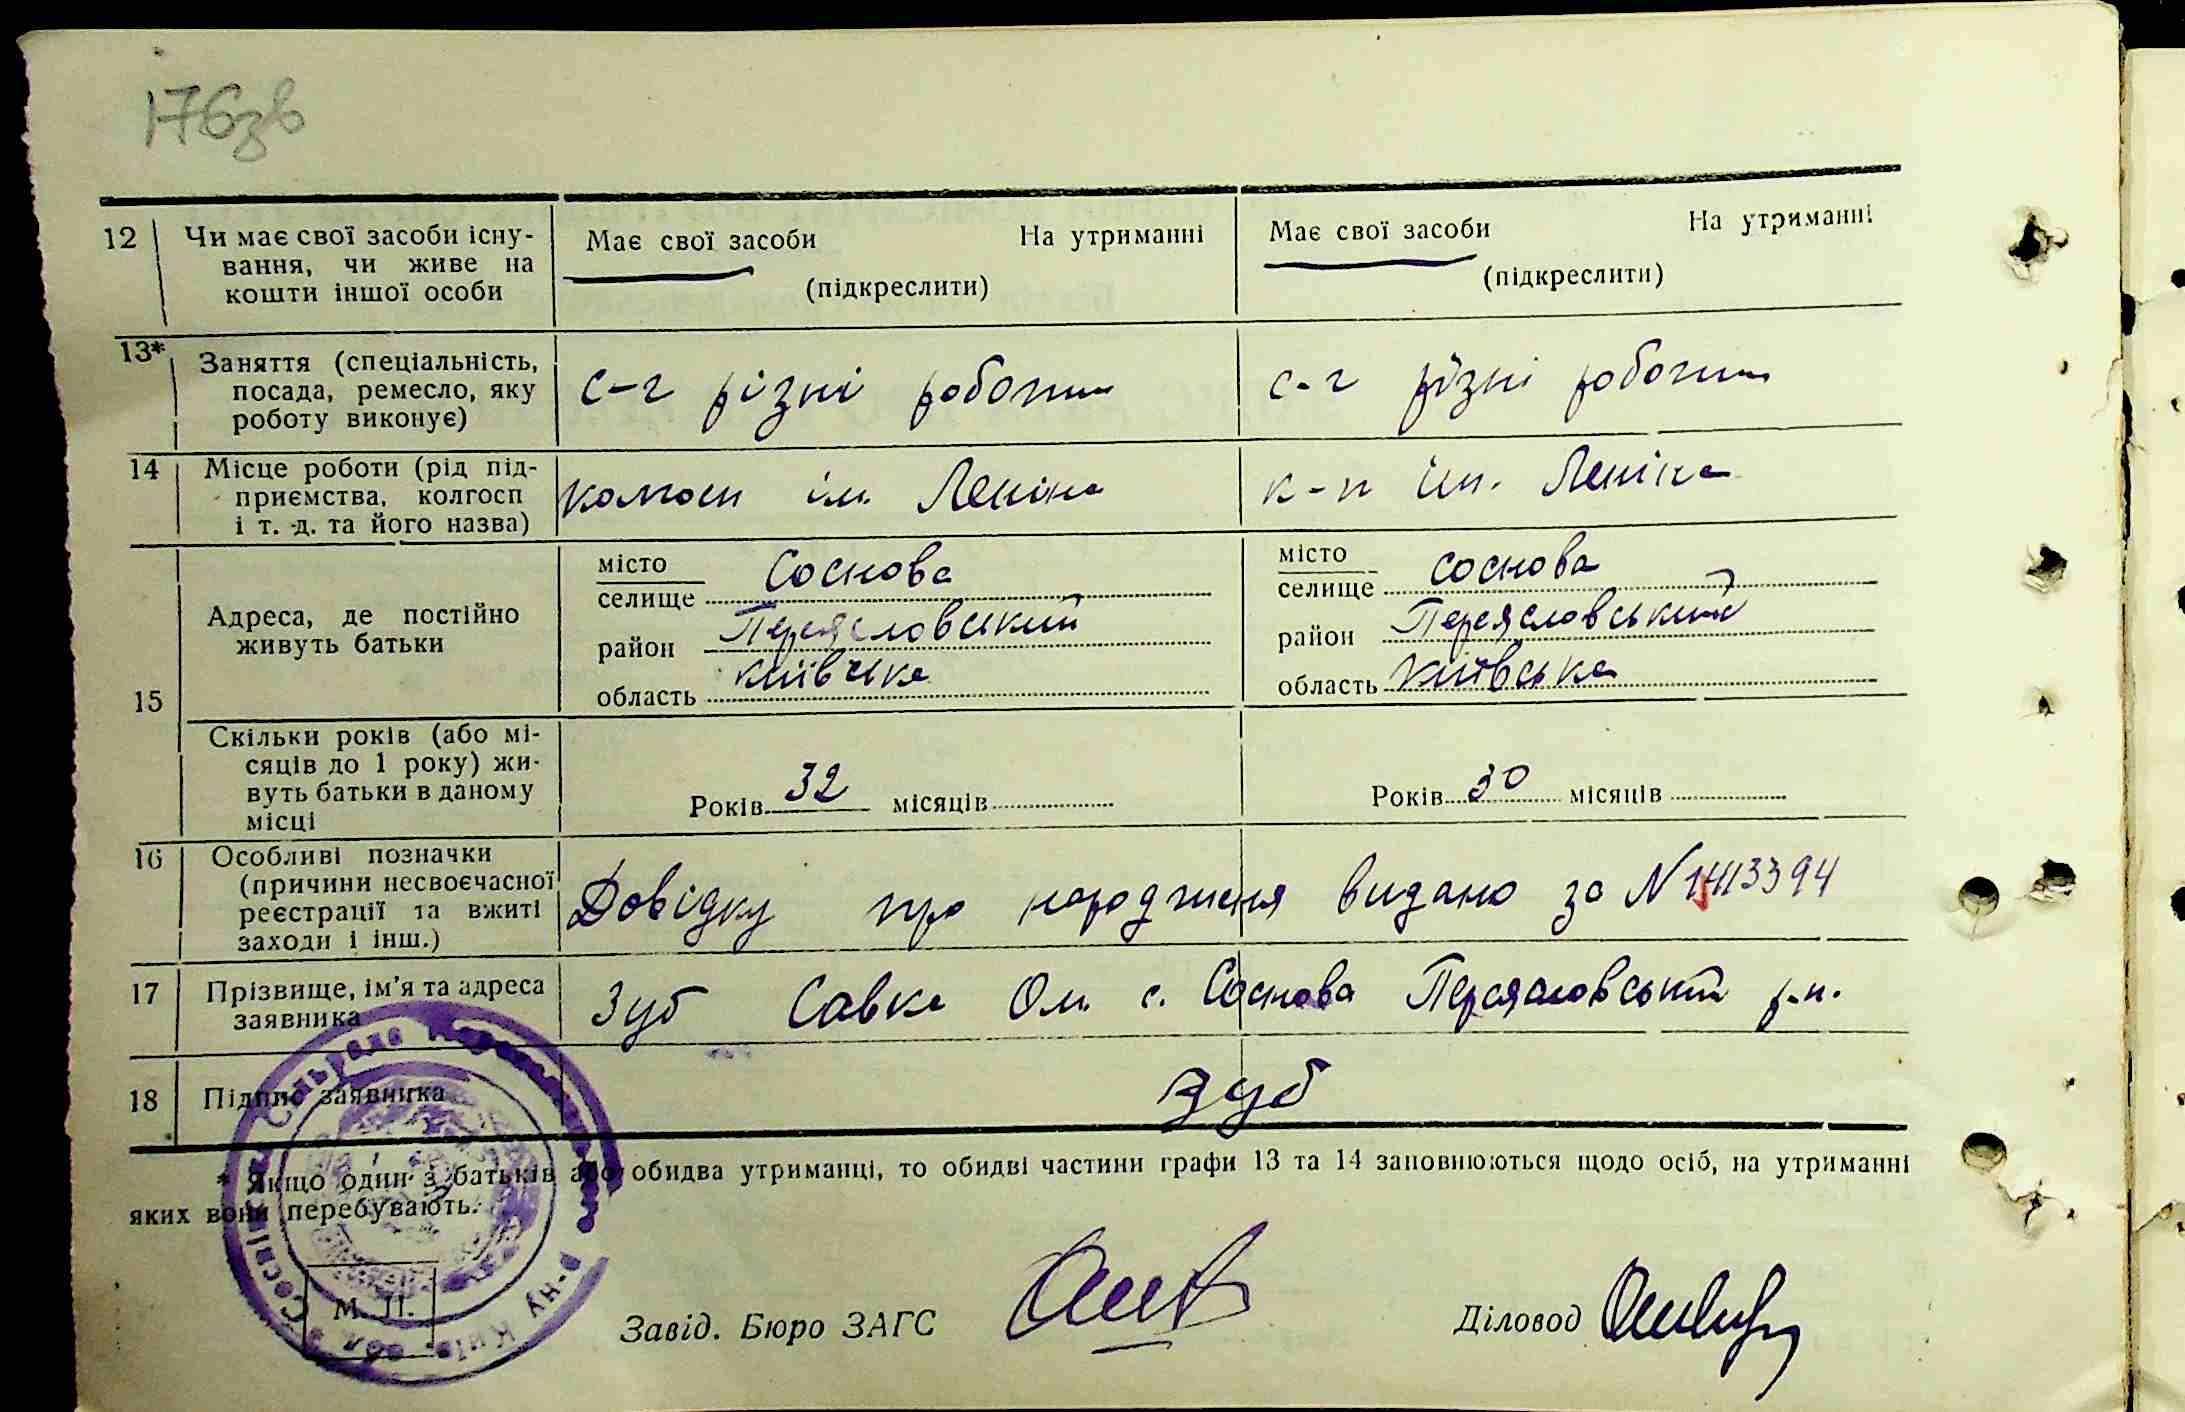 176зв
12 Чи має свої засоби існу-
вання, чи живе на
кошти іншої особи
Має свої засоби На утриманні
(підкреслити)
Має свої засоби На утриманні
(підкреслити)
13* Заняття (спеціальність,
посада, ремесло, яку
роботу виконує)
с-г різні роботи
с-г різні роботи
14 Місце роботи (рід під-
приємства, колгосп
і т. д. та його назва)
колгосп ім. Леніна
к-п ім. Леніна
15
Адреса, де постійно
живуть батьки
місто
селище Соснова
район Переясловський
область київська
місто
селище соснова
район Переясловський
область Київська
Скільки років (або мі-
сяців до 1 року) жи-
вуть батьки в даному
місці
Років 32 місяців
Років 30 місяців
16 Особливі позначки
(причини несвоєчасної
реєстрації та вжиті
заходи і інш.)
Довідку про народження видано за N
17 Прізвище, ім'я та адреса
заявника
Зуб Савка Ом. с. Соснова Переясловський р-н.
18 Підпис заявника
Зуб
* Якщо один з батьків або обидва утриманці, то обидві частини графи 13 та 14 заповнюються щодо осіб, на утриманні
яких вони перебувають.
М. П.
Завід. Бюро ЗАГС
Діловод